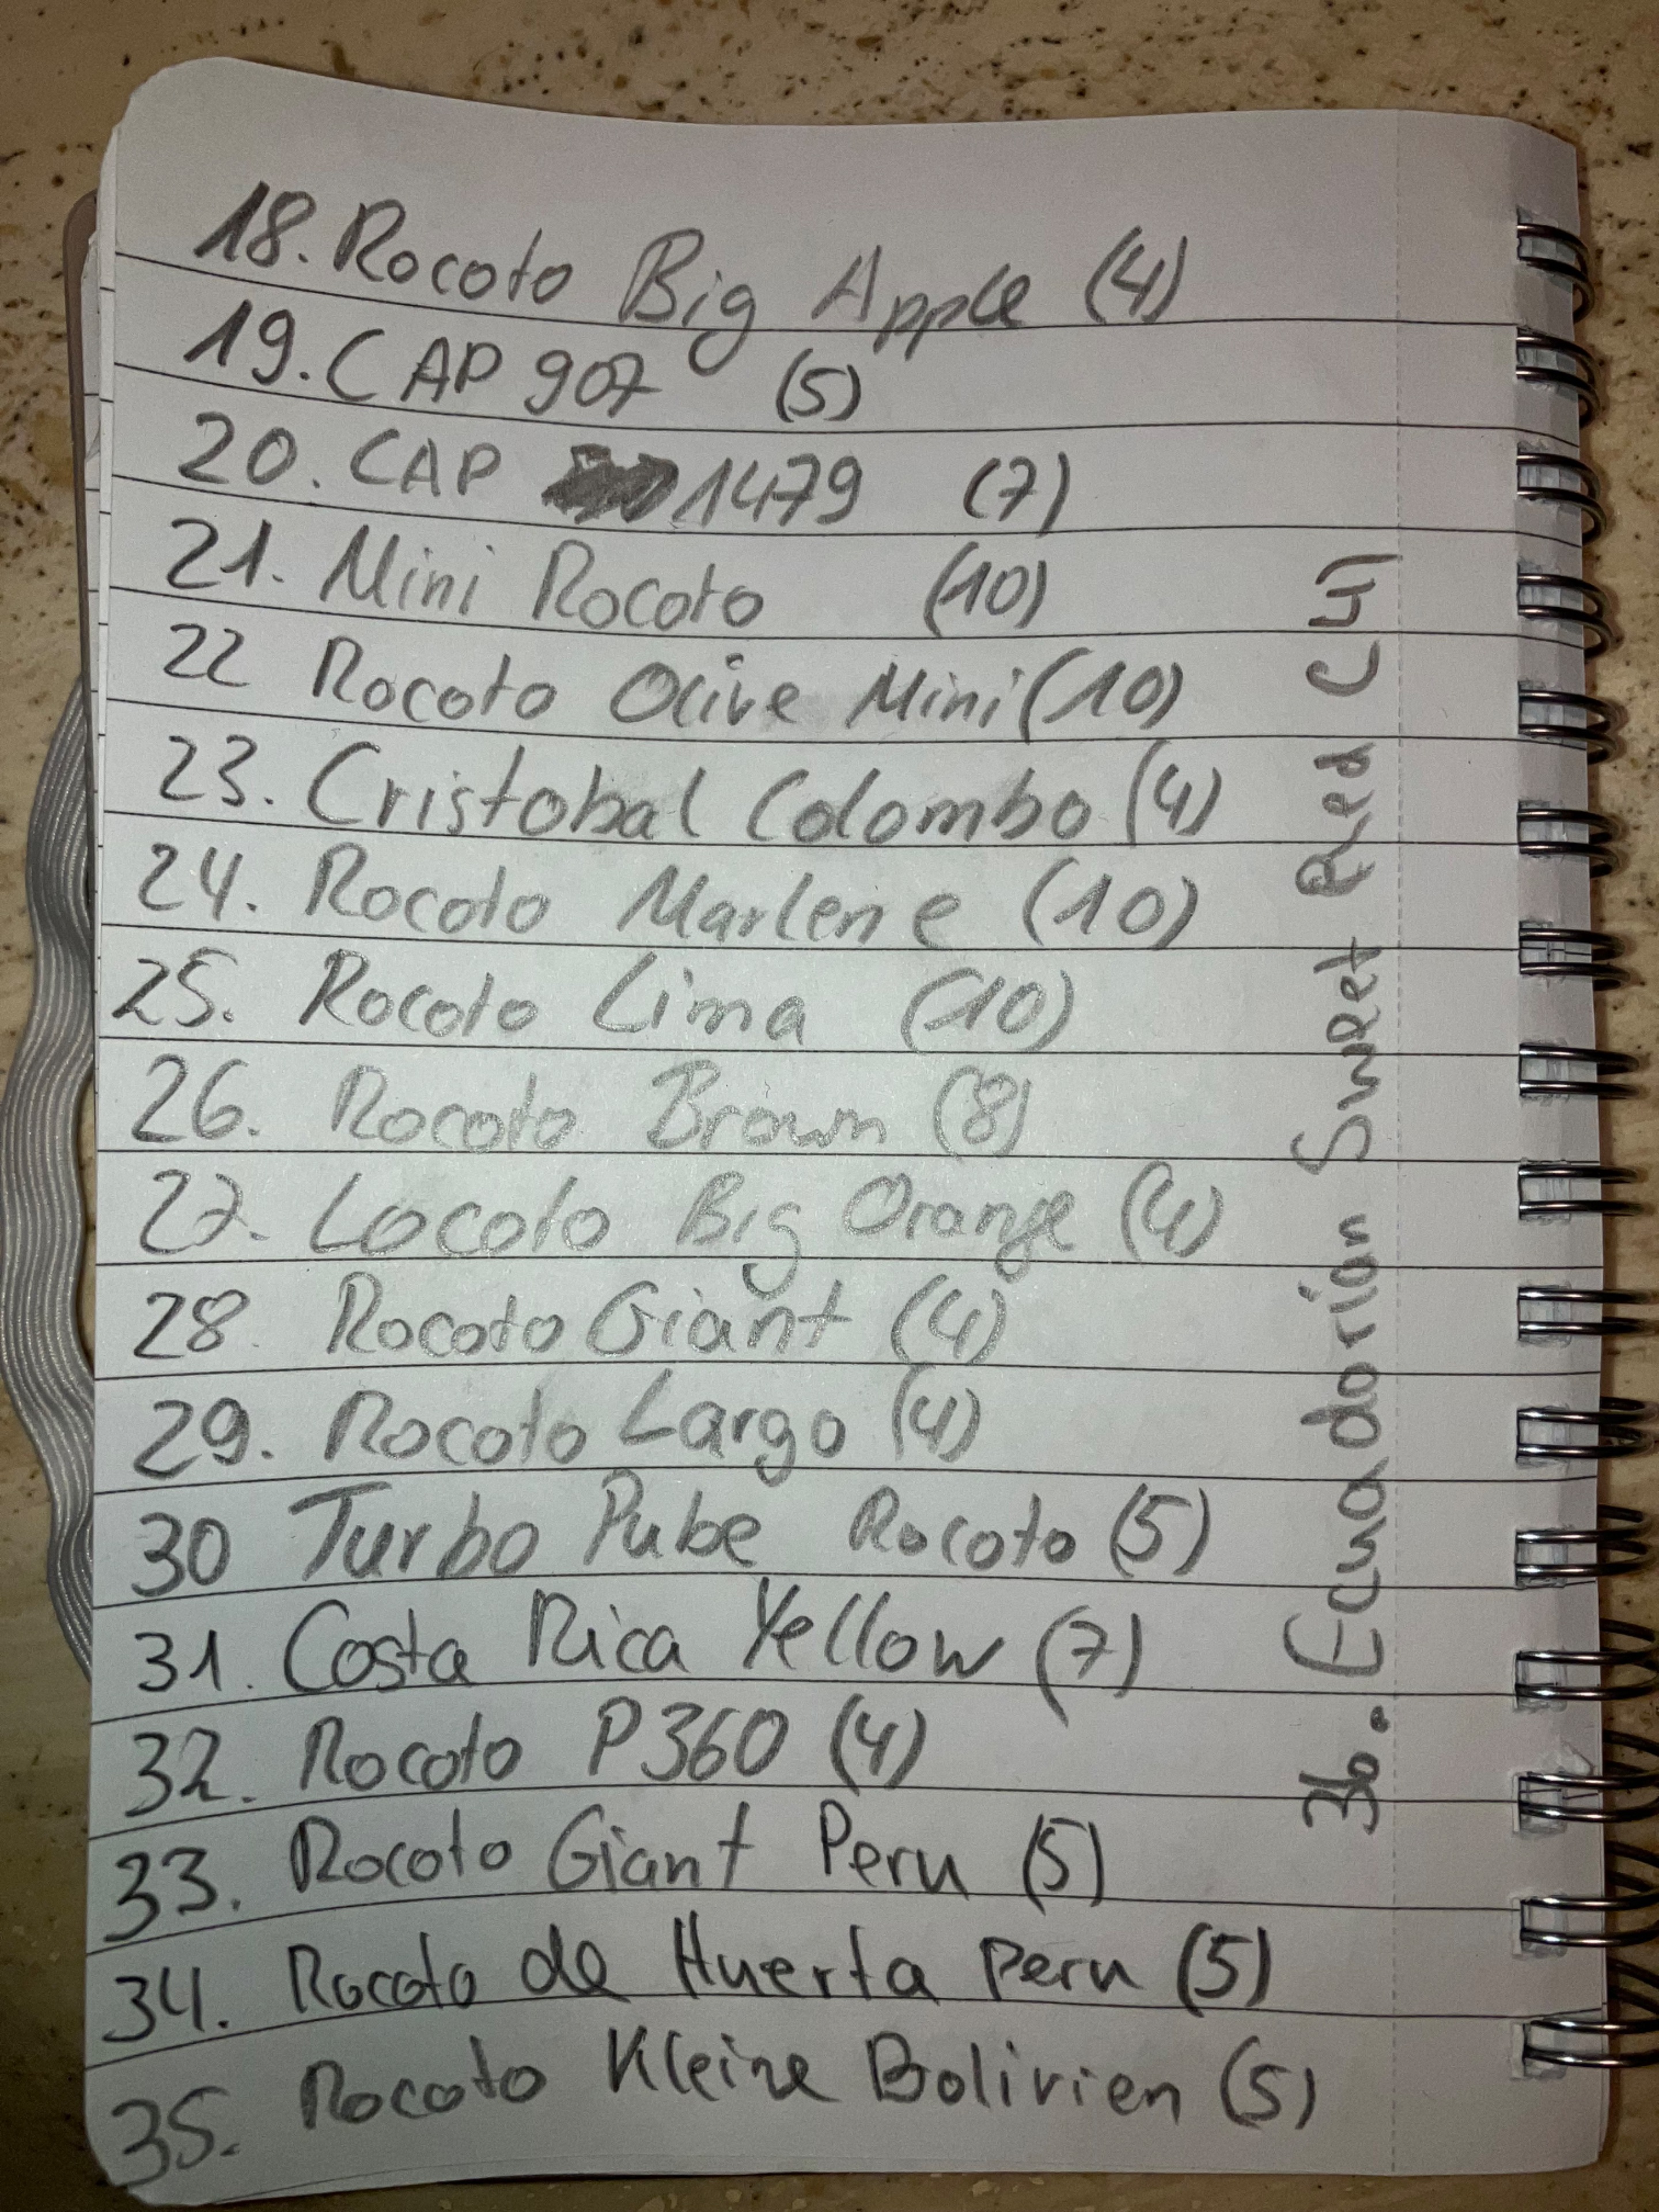 18. Rocoto Big Apple (4)
19. CAP 907 (5)
20. CAP 1479 (7)
21. Mini Rocoto (10)
22 Rocoto Olive Mini (10)
23. Cristobal Colombo (4)
24. Rocoto Marlene (10)
25. Rocoto Lima (10)
26. Rocoto Brown (8)
27. Locoto Big Orange (4)
28. Rocoto Giant (4)
29. Rocoto Largo (4)
30 Turbo Pube Rocoto (5)
31. Costa Rica Yellow (7)
32. Rocoto P360 (4)
33. Rocoto Giant Peru (5)
34. Rocoto de Huerta Peru (5)
35. Rocoto Kleine Bolivien (5)
36. Ecuadorian Sweet Red (4)